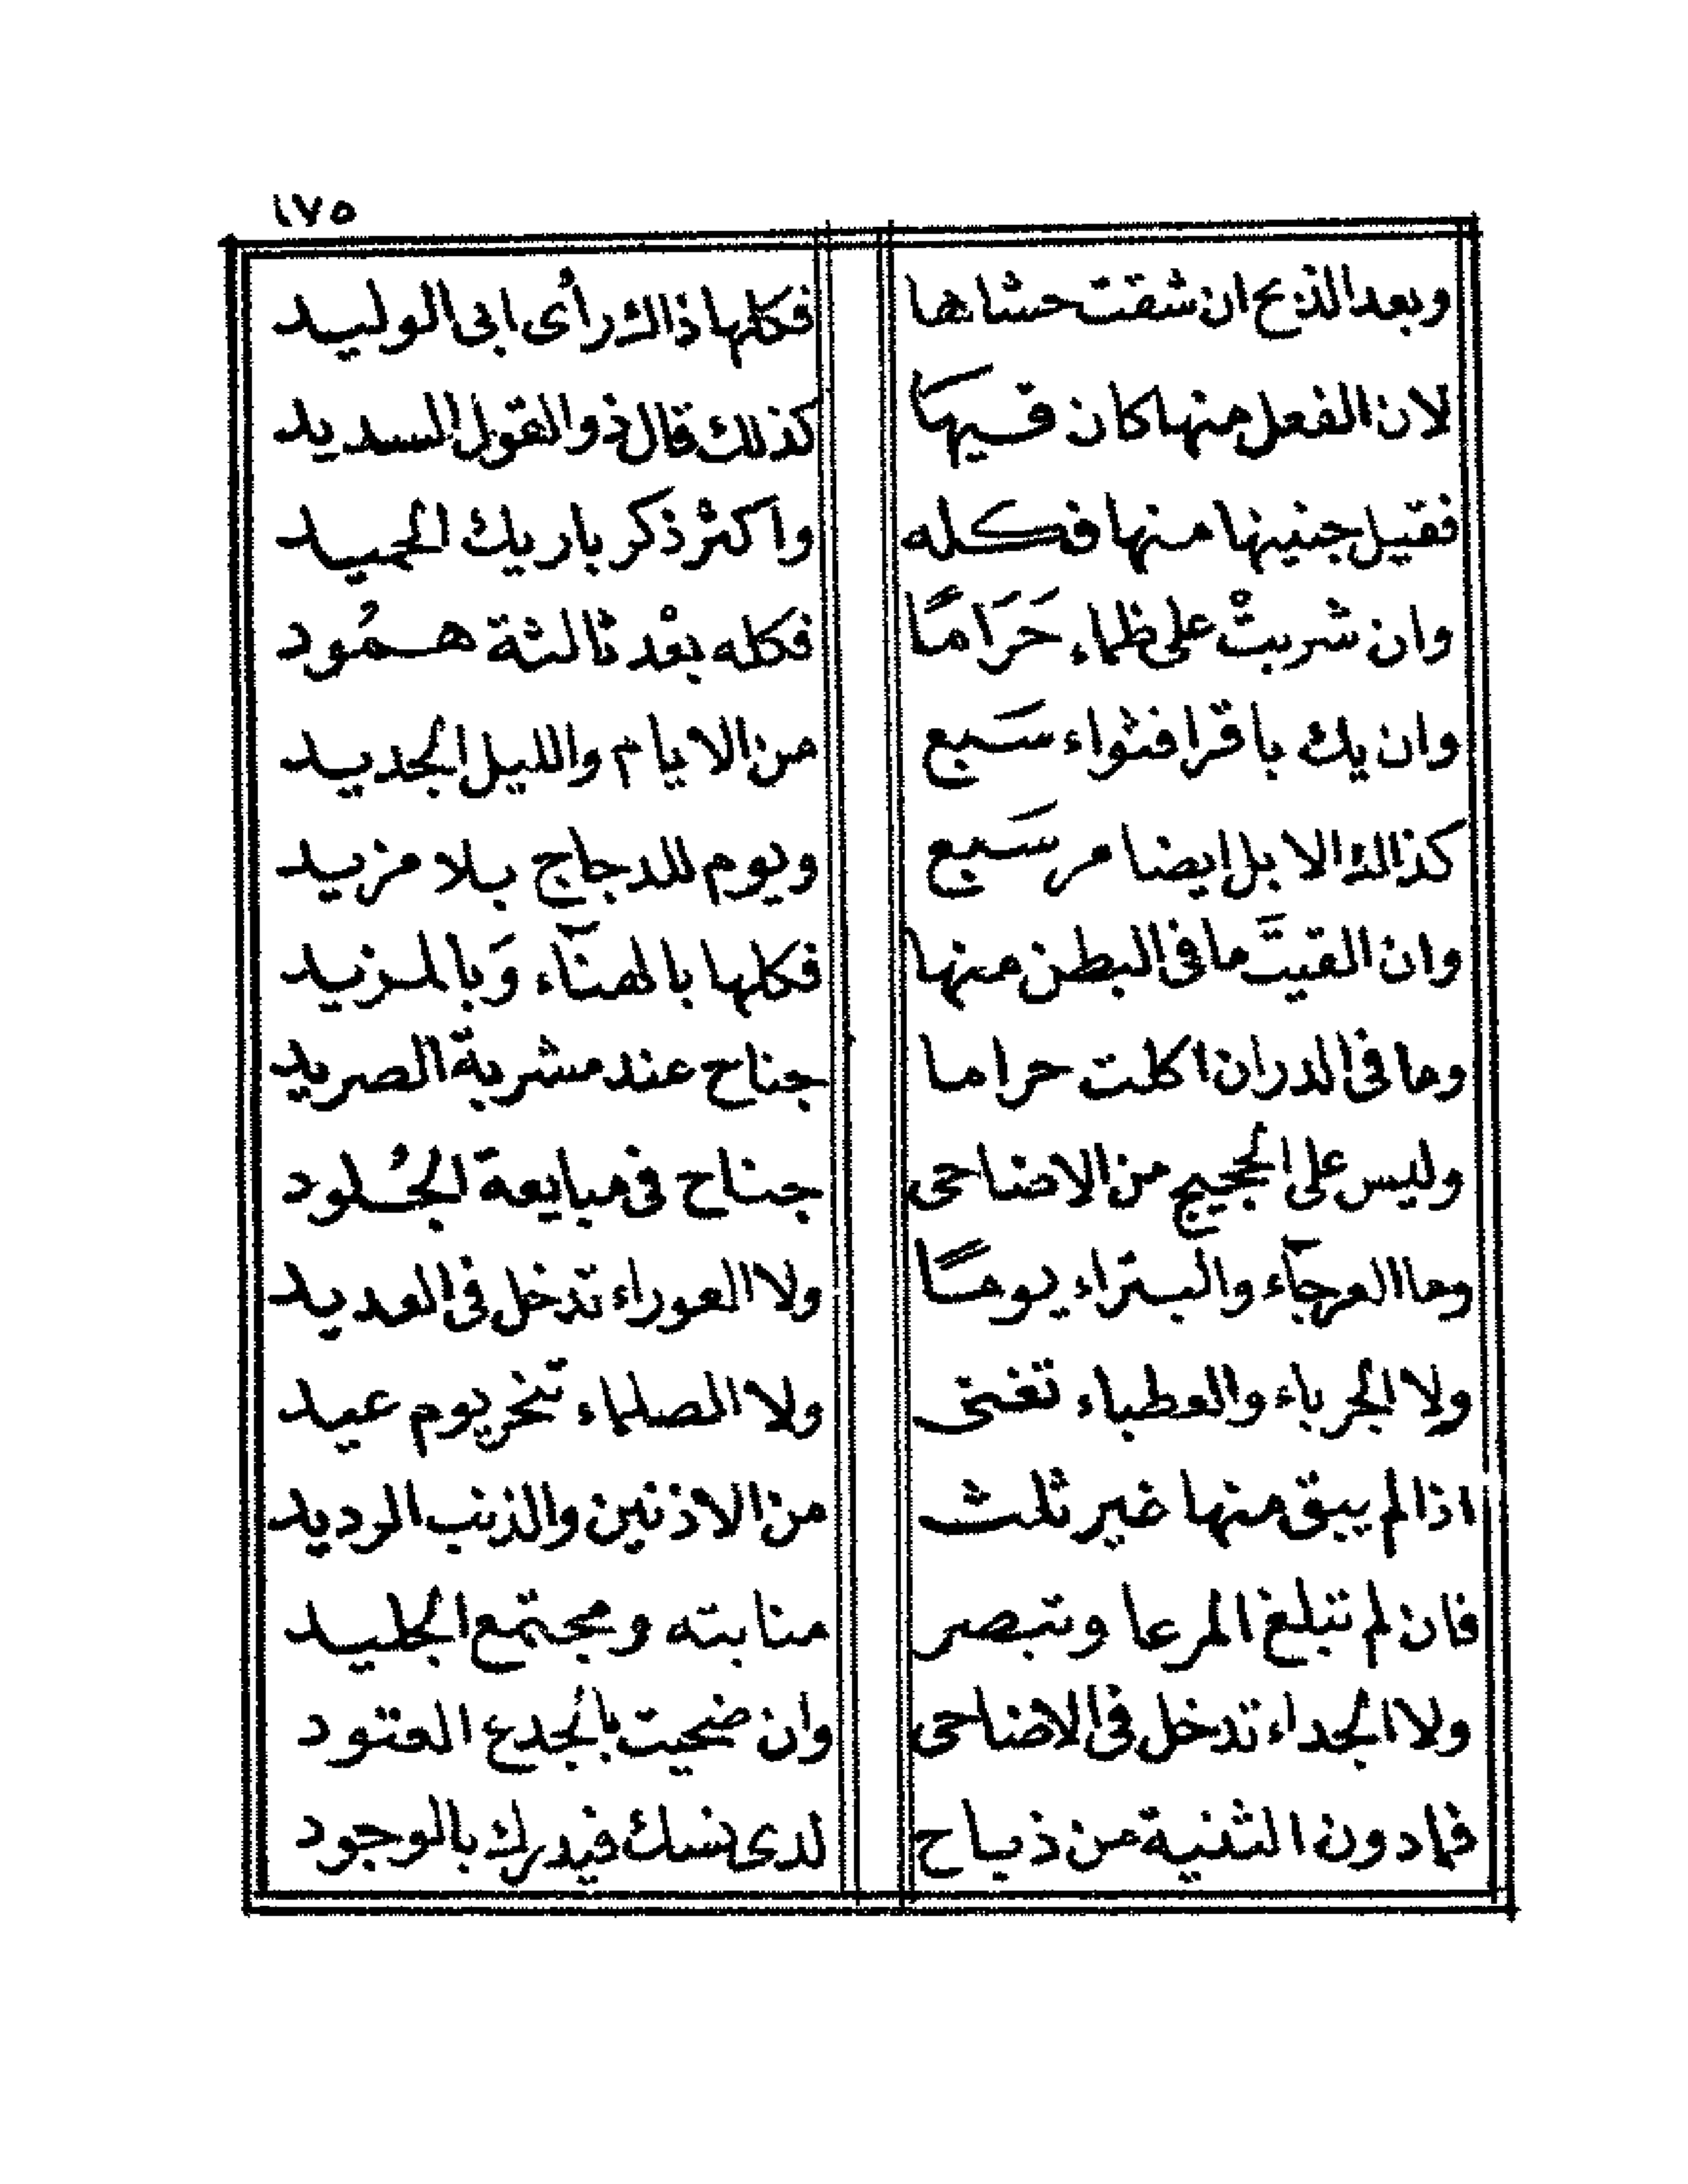 ١٧٥
وبعد الذبح ان شقت حشاها فكلها ذاك رأى ابى الوليد
لان الفعل منها كان فيها كذلك قال ذو القول السديد
فقيل جنينها منها فكله واكثر ذكر باريك الحميد
وان شربتْ على ظماء حَرَامًا فكله بعْد ثالثة همُود
وان يك باقرا فثواء سَبع من الايام والليل الجديد
كذاك الابل ايضا مر سَبع ويوم للدجاج بلا مزيد
وان القيتَ ما فى البطن منها فكلها بالهنآء وَبالمزيد
وما فى الدر ان اكلت حراما جناح عند مشربة الصريد
وليس على الحجيج من الاضاحى جناح فى مبايعة الجُلود
وما العرجآء والبتراء يومًا ولا العوراء تدخل فى العديد
ولا الجرباء والعطباء تغنى ولا الصلماء تنحر يوم عيد
اذا لم يبق منها غير ثلث من الاذنين والذنب الرديد
فان لم تبلغ المرعا وتبصر منابته ومجتمع الجليد
ولا الجداء تدخل فى الاضاحى وان ضحيت بالجدع العتود
فما دون الثنية من ذباح لدى نسك فيدرك بالوجود